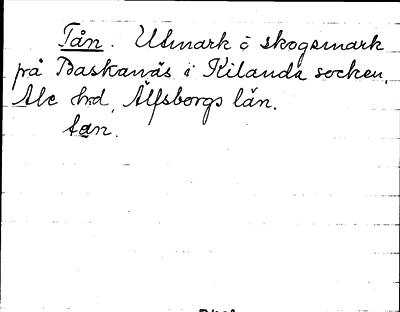 Tån. Utmark o skogsmark
på Baskanäs i Kilanda socken,
Ale hrd, Älfsborgs län.
tån.